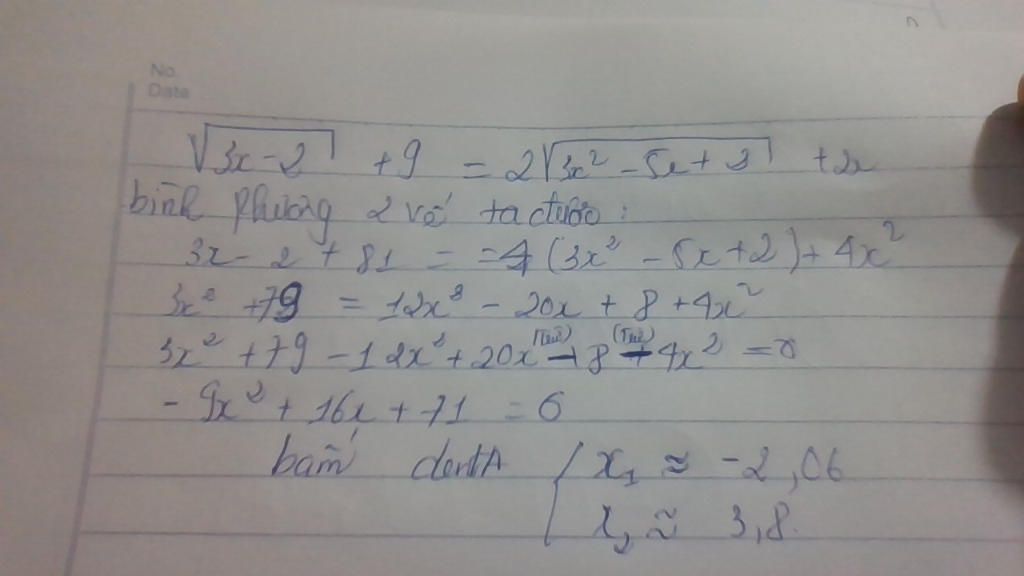 No.
Date
√(3x - 2) + 9 = 2√(3x² - 5x + 2) + 2x
bình phương 2 vế ta được :
3x - 2 + 81 = = 4 (3x² - 5x + 2) + 4x²
3x² + 79 = 12x² - 20x + 8 + 4x²
3x² + 79 - 12x² + 20x - 8 + 4x² = 0
- 9x² + 16x + 71 = 0
bấm dentA { x₁ ≈ -2,06
x₂ ≈ 3,8.